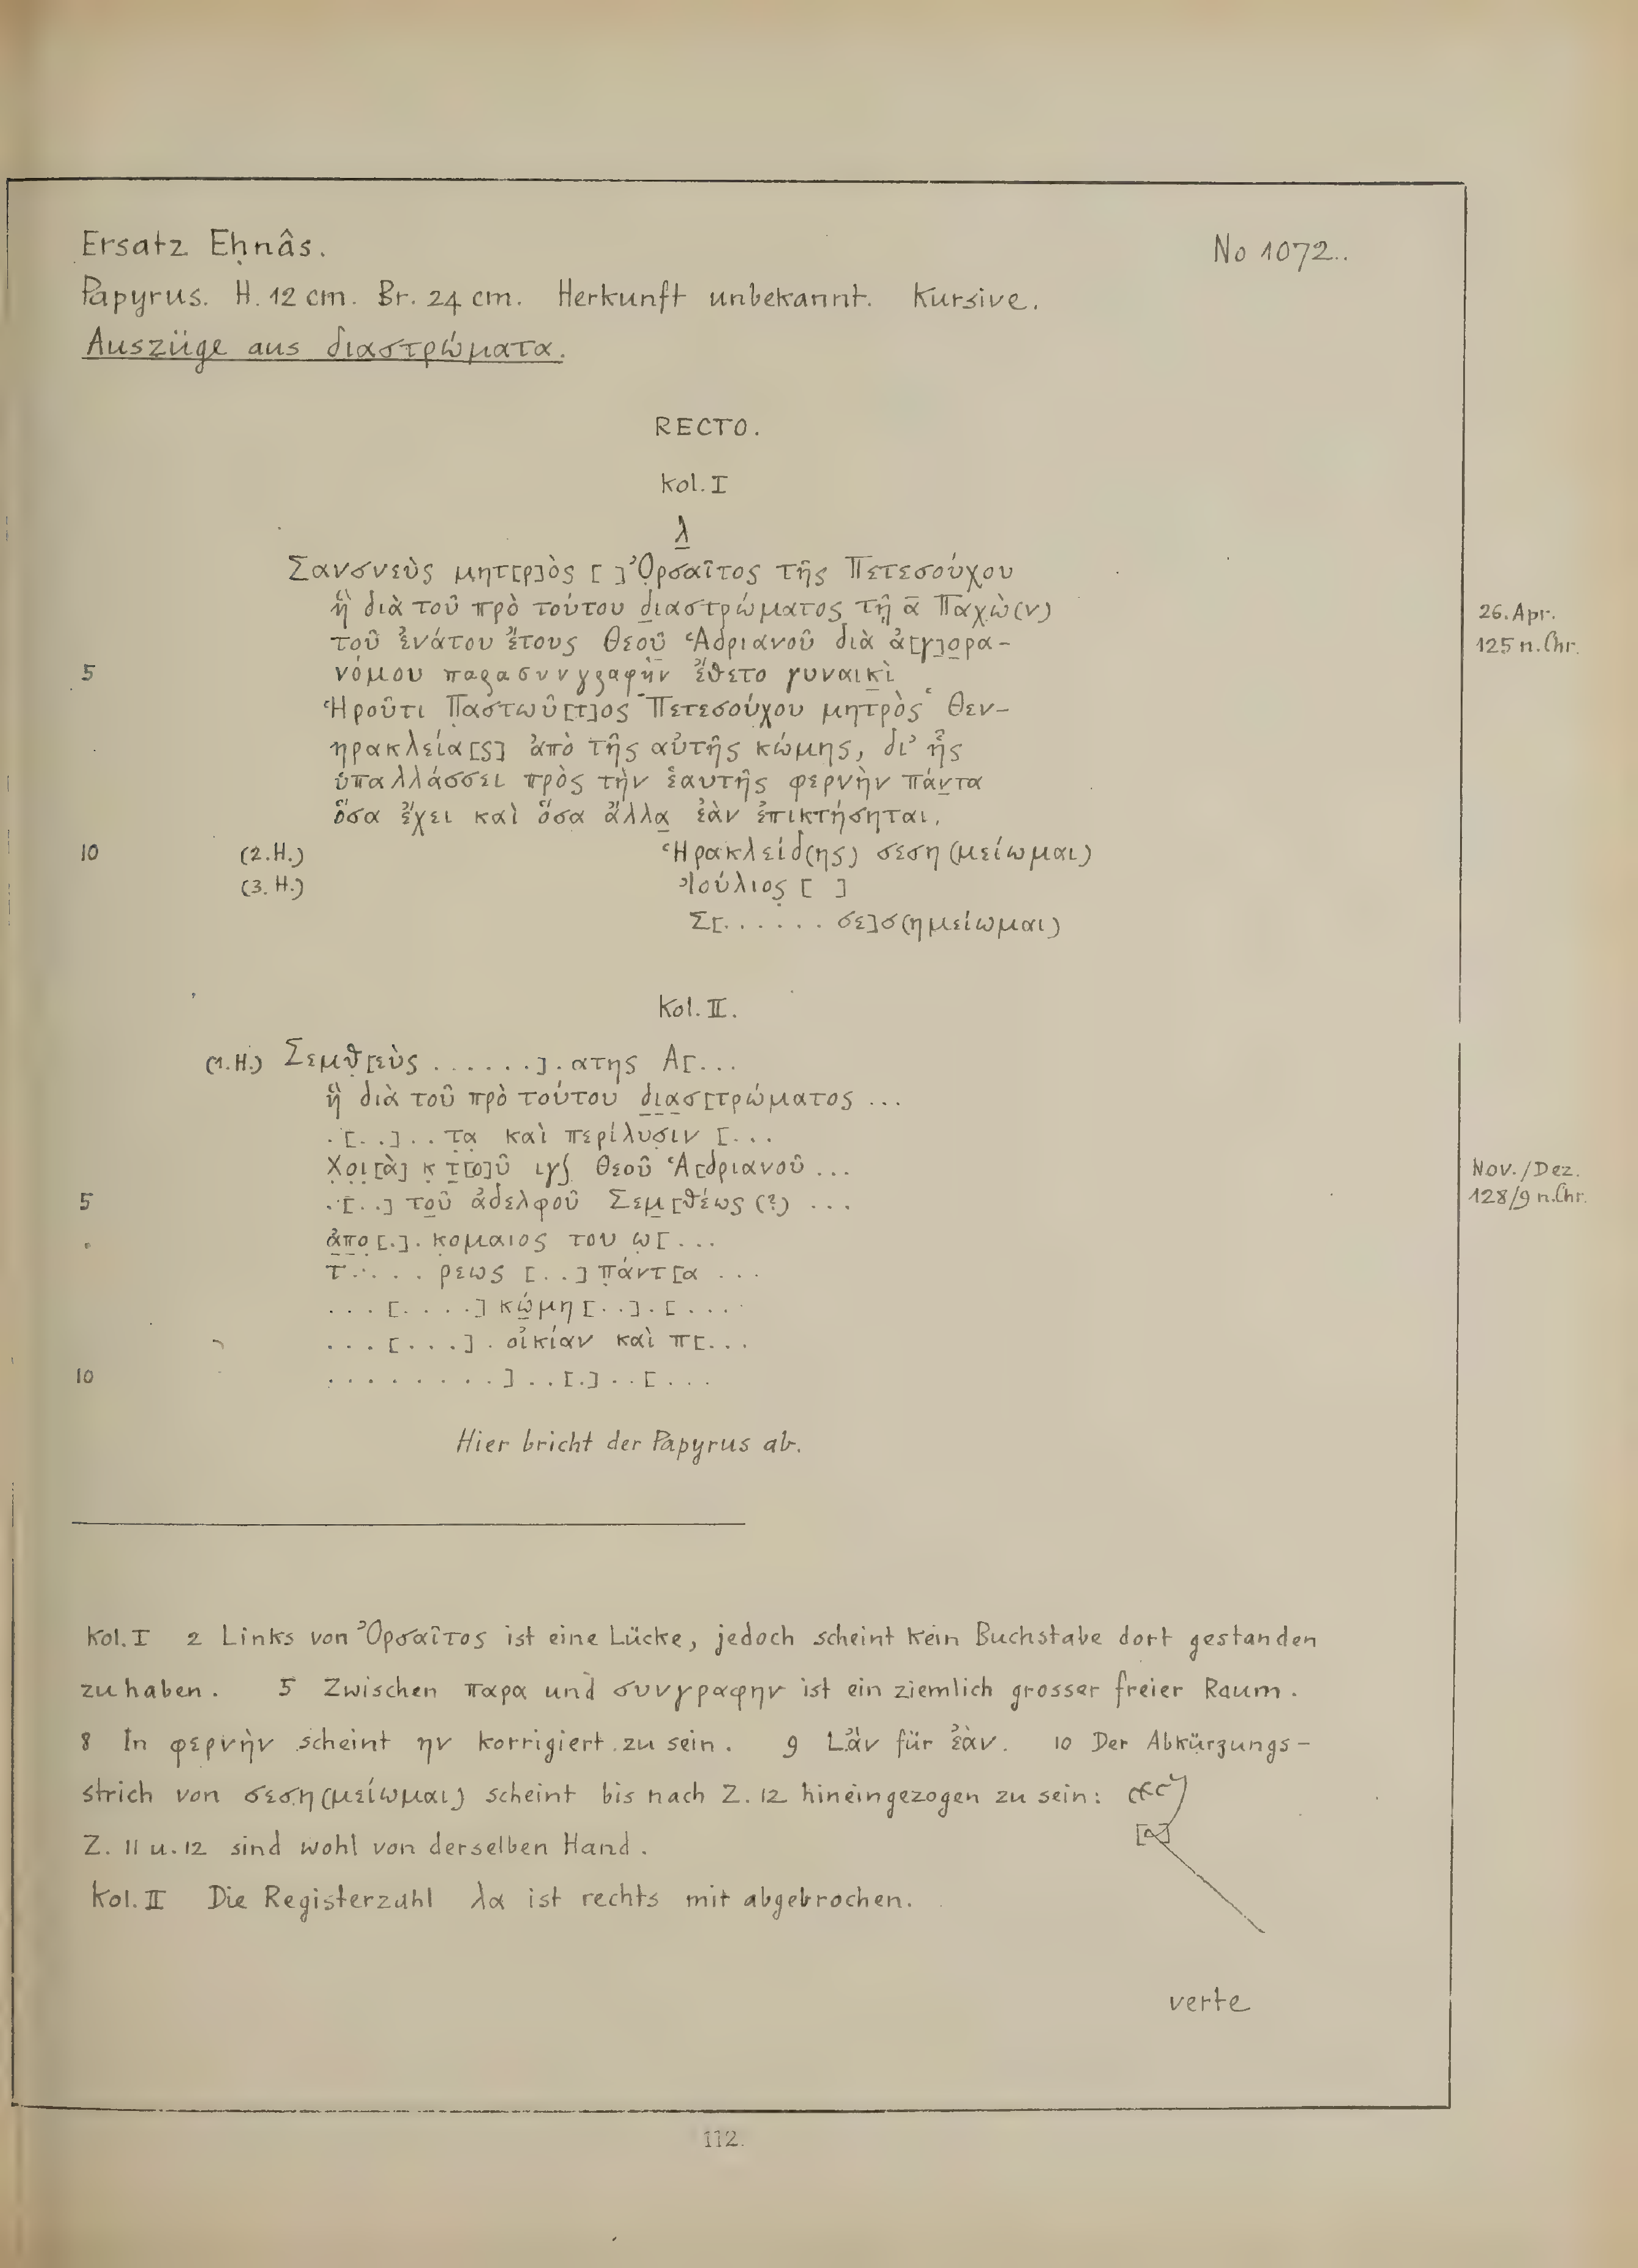 Ersatz Eḥnâs. No 1072.
Papyrus. H. 12 cm. Br. 24 cm. Herkunft unbekannt. Kursive.
Auszüge aus διαστρώματα.
RECTO.
Kol. I
λ
Σανσνεὺς μητ[ρ]ὸς [ ] Ὀρσαῖτος τῆς Πετεσούχου
ἣ διὰ τοῦ πρὸ τούτου διαστρώματος τῇ ᾱ Παχὼ(ν) 26. Apr.
τοῦ ἐνάτου ἔτους Θεοῦ Ἁδριανοῦ διὰ ἀ[γ]ορα- 125 n. Chr.
5 νόμου παρασυνγραφὴν ἔθετο γυναικὶ
Ἡροῦτι Παστωῦ[τ]ος Πετεσούχου μητρὸς Θεν-
ηρακλεία[ς] ἀπὸ τῆς αὐτῆς κώμης, δι' ἧς
ὑπαλλάσσει πρὸς τὴν ἑαυτῆς φερνὴν πάντα
ὅσα ἔχει καὶ ὅσα ἄλλα ἐὰν ἐπικτήσηται.
10 (2. H.) Ἡρακλείδ(ης) σεση(μείωμαι)
(3. H.) Ἰούλιος [ ]
Σ[...... σε]σ(ημείωμαι)
Kol. II.
(1. H.) Σεμθ[εὺς ......]. ατης Α[...
ἣ διὰ τοῦ πρὸ τούτου διασ[τρώματος ...
.[..].. τα καὶ περίλυσιν [...
Χοι[ὰ]κ τ[ο]ῦ ιγ∫ Θεοῦ Ἁ[δριανοῦ ... Nov./Dez.
5 .[..] τοῦ ἀδελφοῦ Σεμ[θέως (?) ... 128/9 n. Chr.
ἀπο[.]. κομαιος του ω[...
τ.... ρεως [..] πάντ[α ...
...[....] κώμη[..].[....
...[...]. οἰκίαν καὶ π[...
10 .........]..[.]..[...
Hier bricht der Papyrus ab.
Kol. I 2 Links von Ὀρσαῖτος ist eine Lücke, jedoch scheint kein Buchstabe dort gestanden
zu haben. 5 Zwischen παρα und συνγραφην ist ein ziemlich grosser freier Raum.
8 In φερνὴν scheint ην korrigiert zu sein. 9 Lἂν für ἐὰν. 10 Der Abkürzungs-
strich von σεση(μείωμαι) scheint bis nach Z. 12 hineingezogen zu sein:
Z. 11 u. 12 sind wohl von derselben Hand.
Kol. II Die Registerzahl λα ist rechts mit abgebrochen.
verte
112.